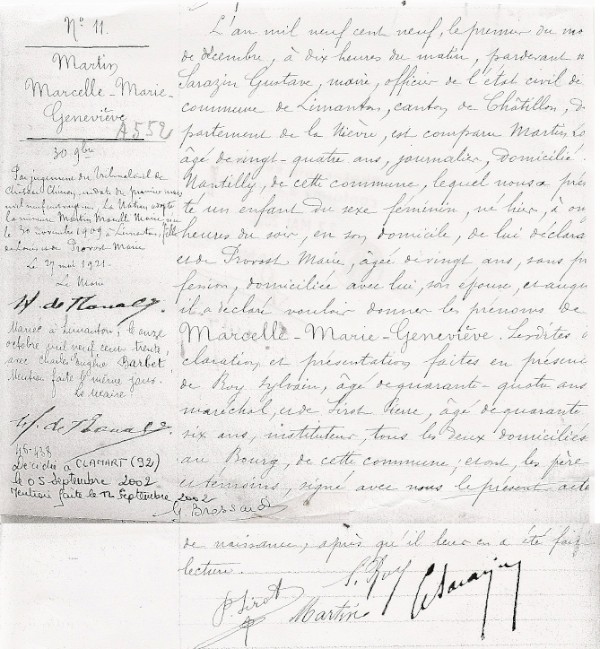 N° 11.
Martin
Marcelle-Marie-
Geneviève
A552
30 9bre
Par jugement du Tribunal civil de
Château-Chinon, en date du premier mars
mil neuf vingt un, la Nation adopte
la mineure Martin Marcelle Marie née
le 30 novembre 1909 à Limanton, fille
de Louis et de Provost Marie
Le 27 mai 1921.
Le Maire
Mariée à Limanton, le onze
octobre mil neuf cent trente,
avec Charles Eugène Barbet
Mention faite le même jour.
Le Maire,
46-438
Décédée à CLAMART (92)
le 05 septembre 2002
Mention faite le 12 Septembre 2002
G Brossard
L'an mil neuf cent neuf, le premier du mo
de décembre, à dix heures du matin, pardevant n
Sarazin Gustave, maire, officier de l'état civil de
commune de Limanton, canton de Châtillon, d
partement de la Nièvre, est comparu Martin Lo
âgé de vingt-quatre ans, journalier, domicilié
Nantilly, de cette commune, lequel nous a prés
té un enfant du sexe féminin, né hier, à on
heures du soir, en son domicile, de lui déclara
et de Provost Marie, âgée de vingt ans, sans pr
fession, domiciliée avec lui, son épouse, et auqu
il a déclaré vouloir donner les prénoms de
Marcelle-Marie-Geneviève. Lesdites d
claration et présentation faites en présen
de Roy Sylvain, âgé de quarante-quatre ans
maréchal, et de Sirot Pierre, âgé de quarante
six ans, instituteur, tous les deux domiciliés
au Bourg, de cette commune; et ont, les père
et témoins, signé avec nous le présent acte
de naissance, après qu'il leur en a été fait
lecture.
P. Sirot
S. Roy
Martin
G Sarazin